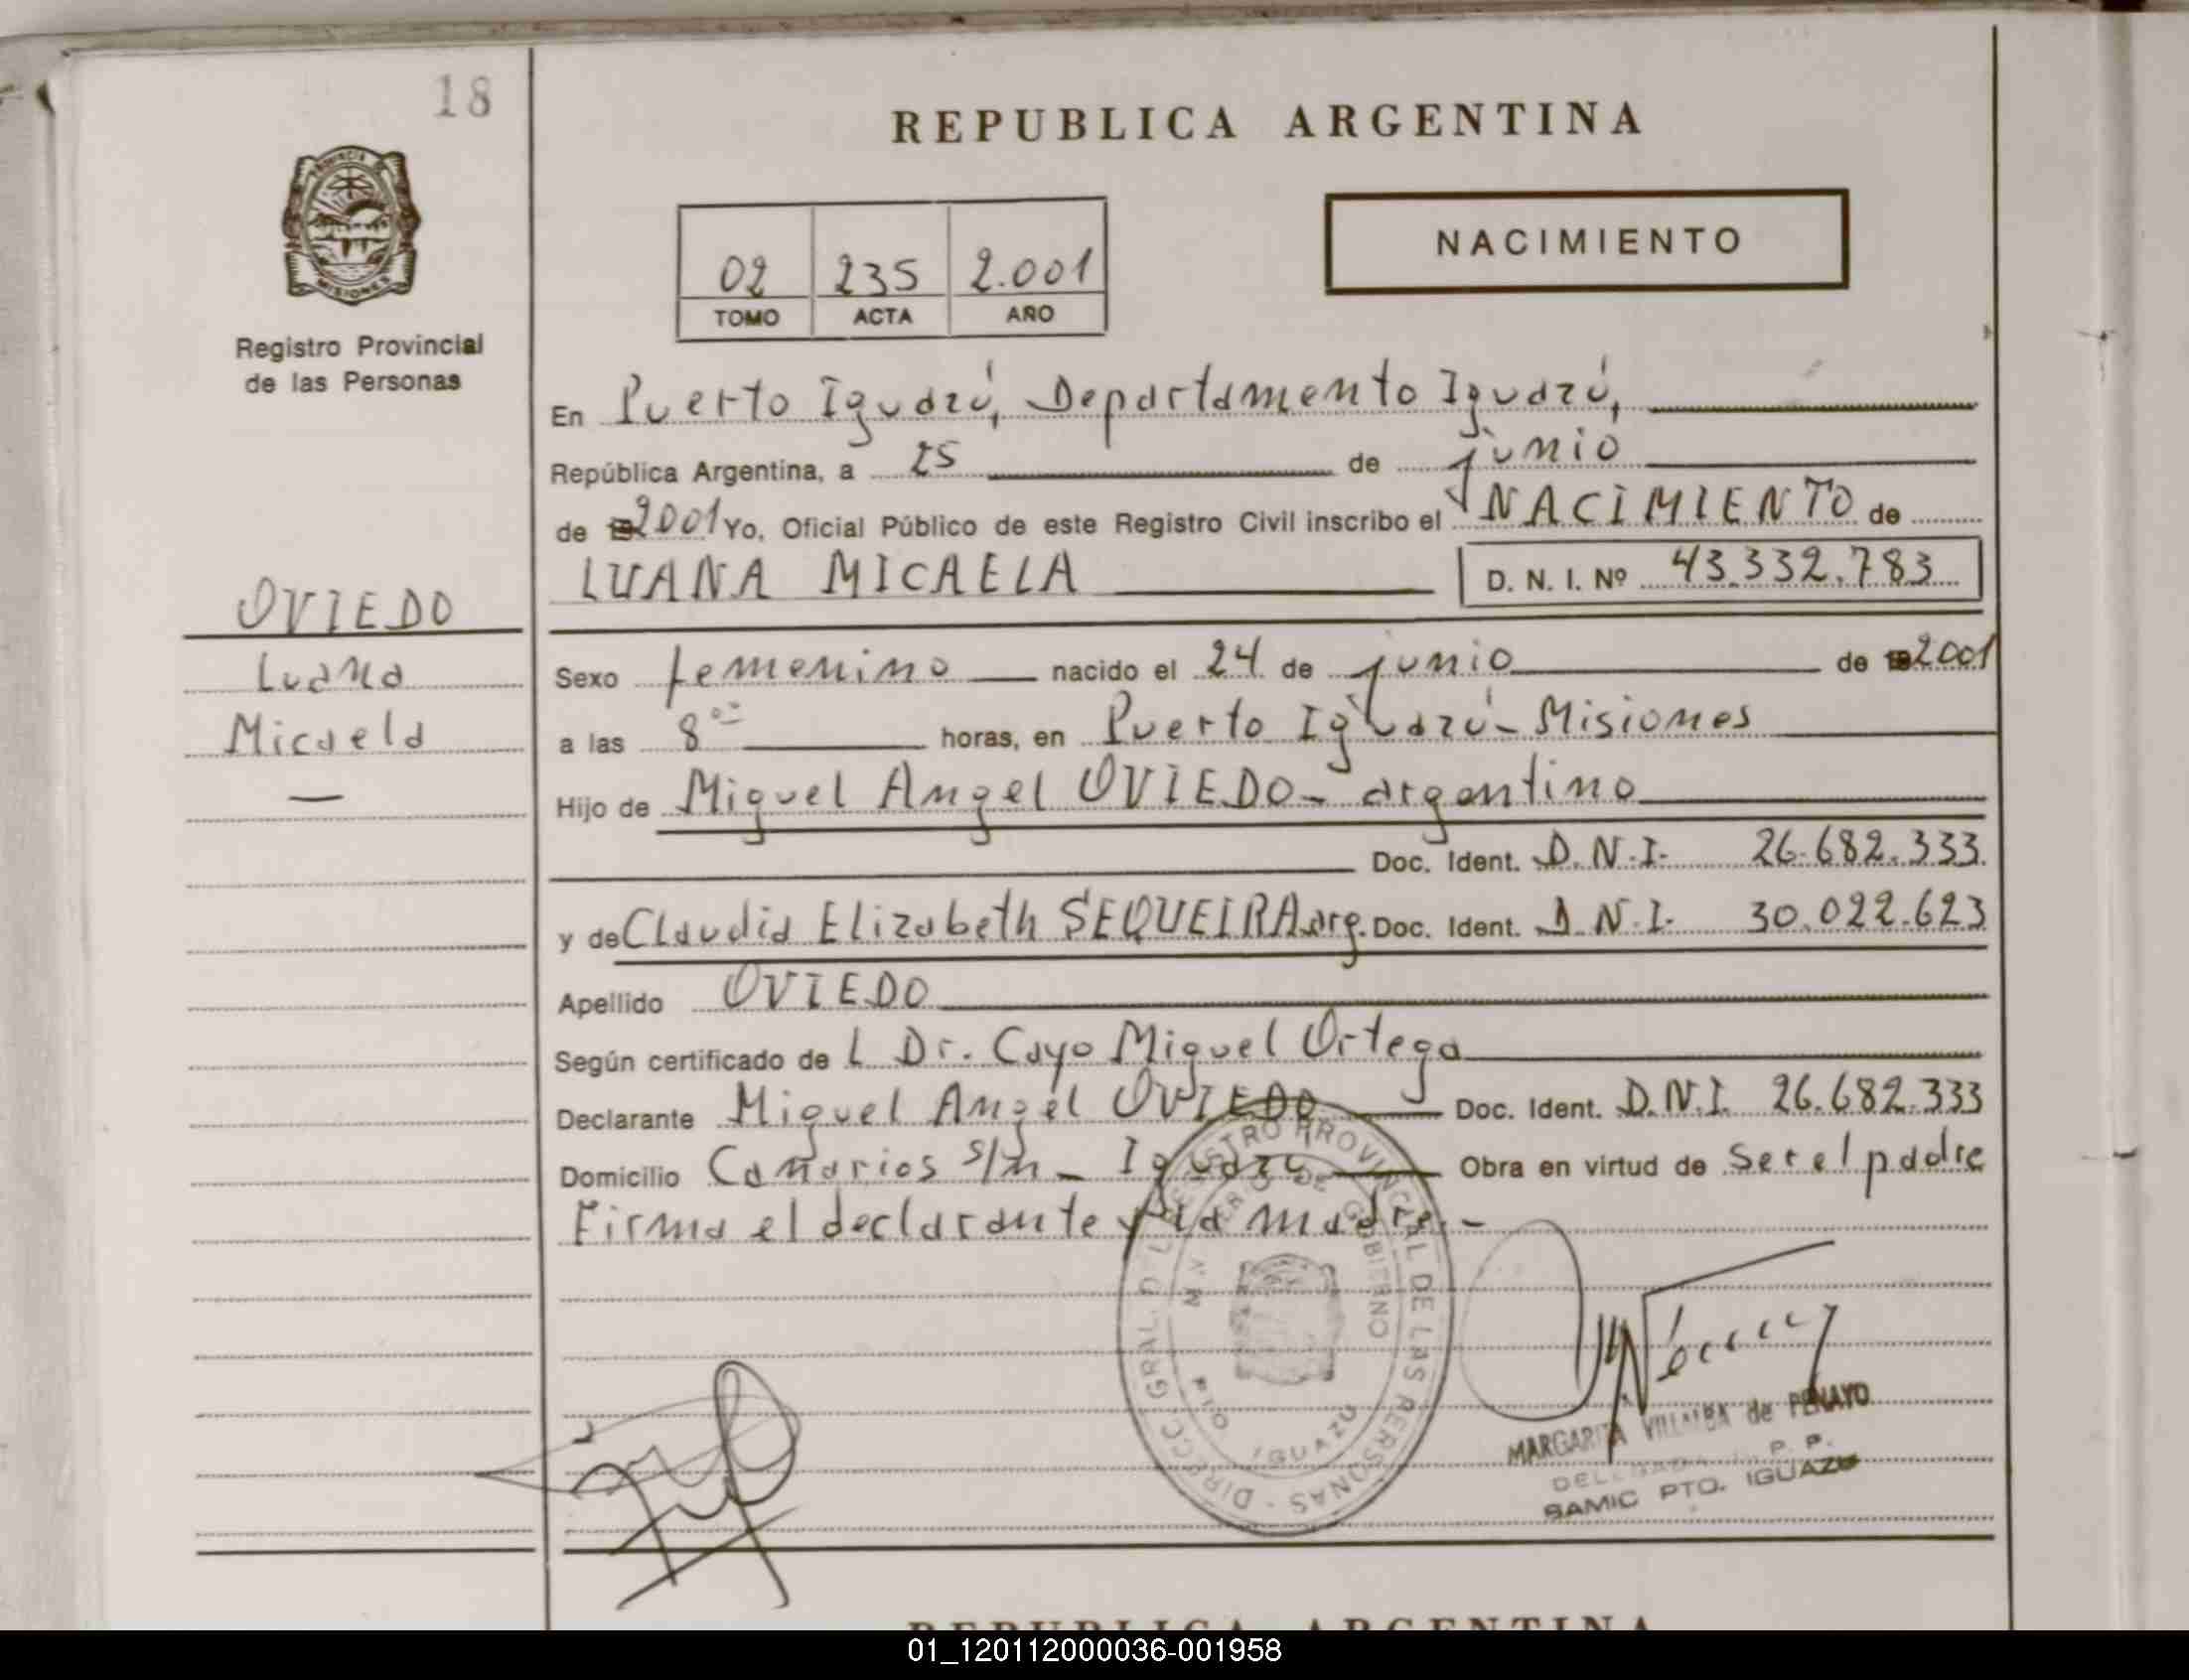 18
REPUBLICA ARGENTINA
PROVINCIA DE
MISIONES
Registro Provincial
de las Personas
02 235 2.001
TOMO ACTA AÑO
NACIMIENTO
En Puerto Iguazú, Departamento Iguazú,
República Argentina, a 25 de junio
de 19 2001 Yo, Oficial Público de este Registro Civil inscribo el NACIMIENTO de
LUANA MICAELA D. N. I. Nº 43.332.783
OVIEDO
Luana
Micaela
—
Sexo femenino nacido el 24 de junio de 19 2001
a las 8 horas, en Puerto Iguazú - Misiones
Hijo de Miguel Angel OVIEDO - argentino
Doc. Ident. D.N.I. 26.682.333
y de Claudia Elizabeth SEQUEIRA arg. Doc. Ident. D.N.I. 30.022.623
Apellido OVIEDO
Según certificado de L Dr. Cayo Miguel Ortega
Declarante Miguel Angel OVIEDO Doc. Ident. D.N.I. 26.682.333
Domicilio Canarios s/n - Iguazú Obra en virtud de ser el padre
Firma el declarante y la madre. -
DIRECC. GRAL. DEL REGISTRO PROVINCIAL DE LAS PERSONAS
DE GOBIERNO
IGUAZU
MARGARITA VILLALBA de PENAYO
DELEGADA P. P.
SAMIC PTO. IGUAZU
REPUBLICA ARGENTINA
01_120112000036-001958